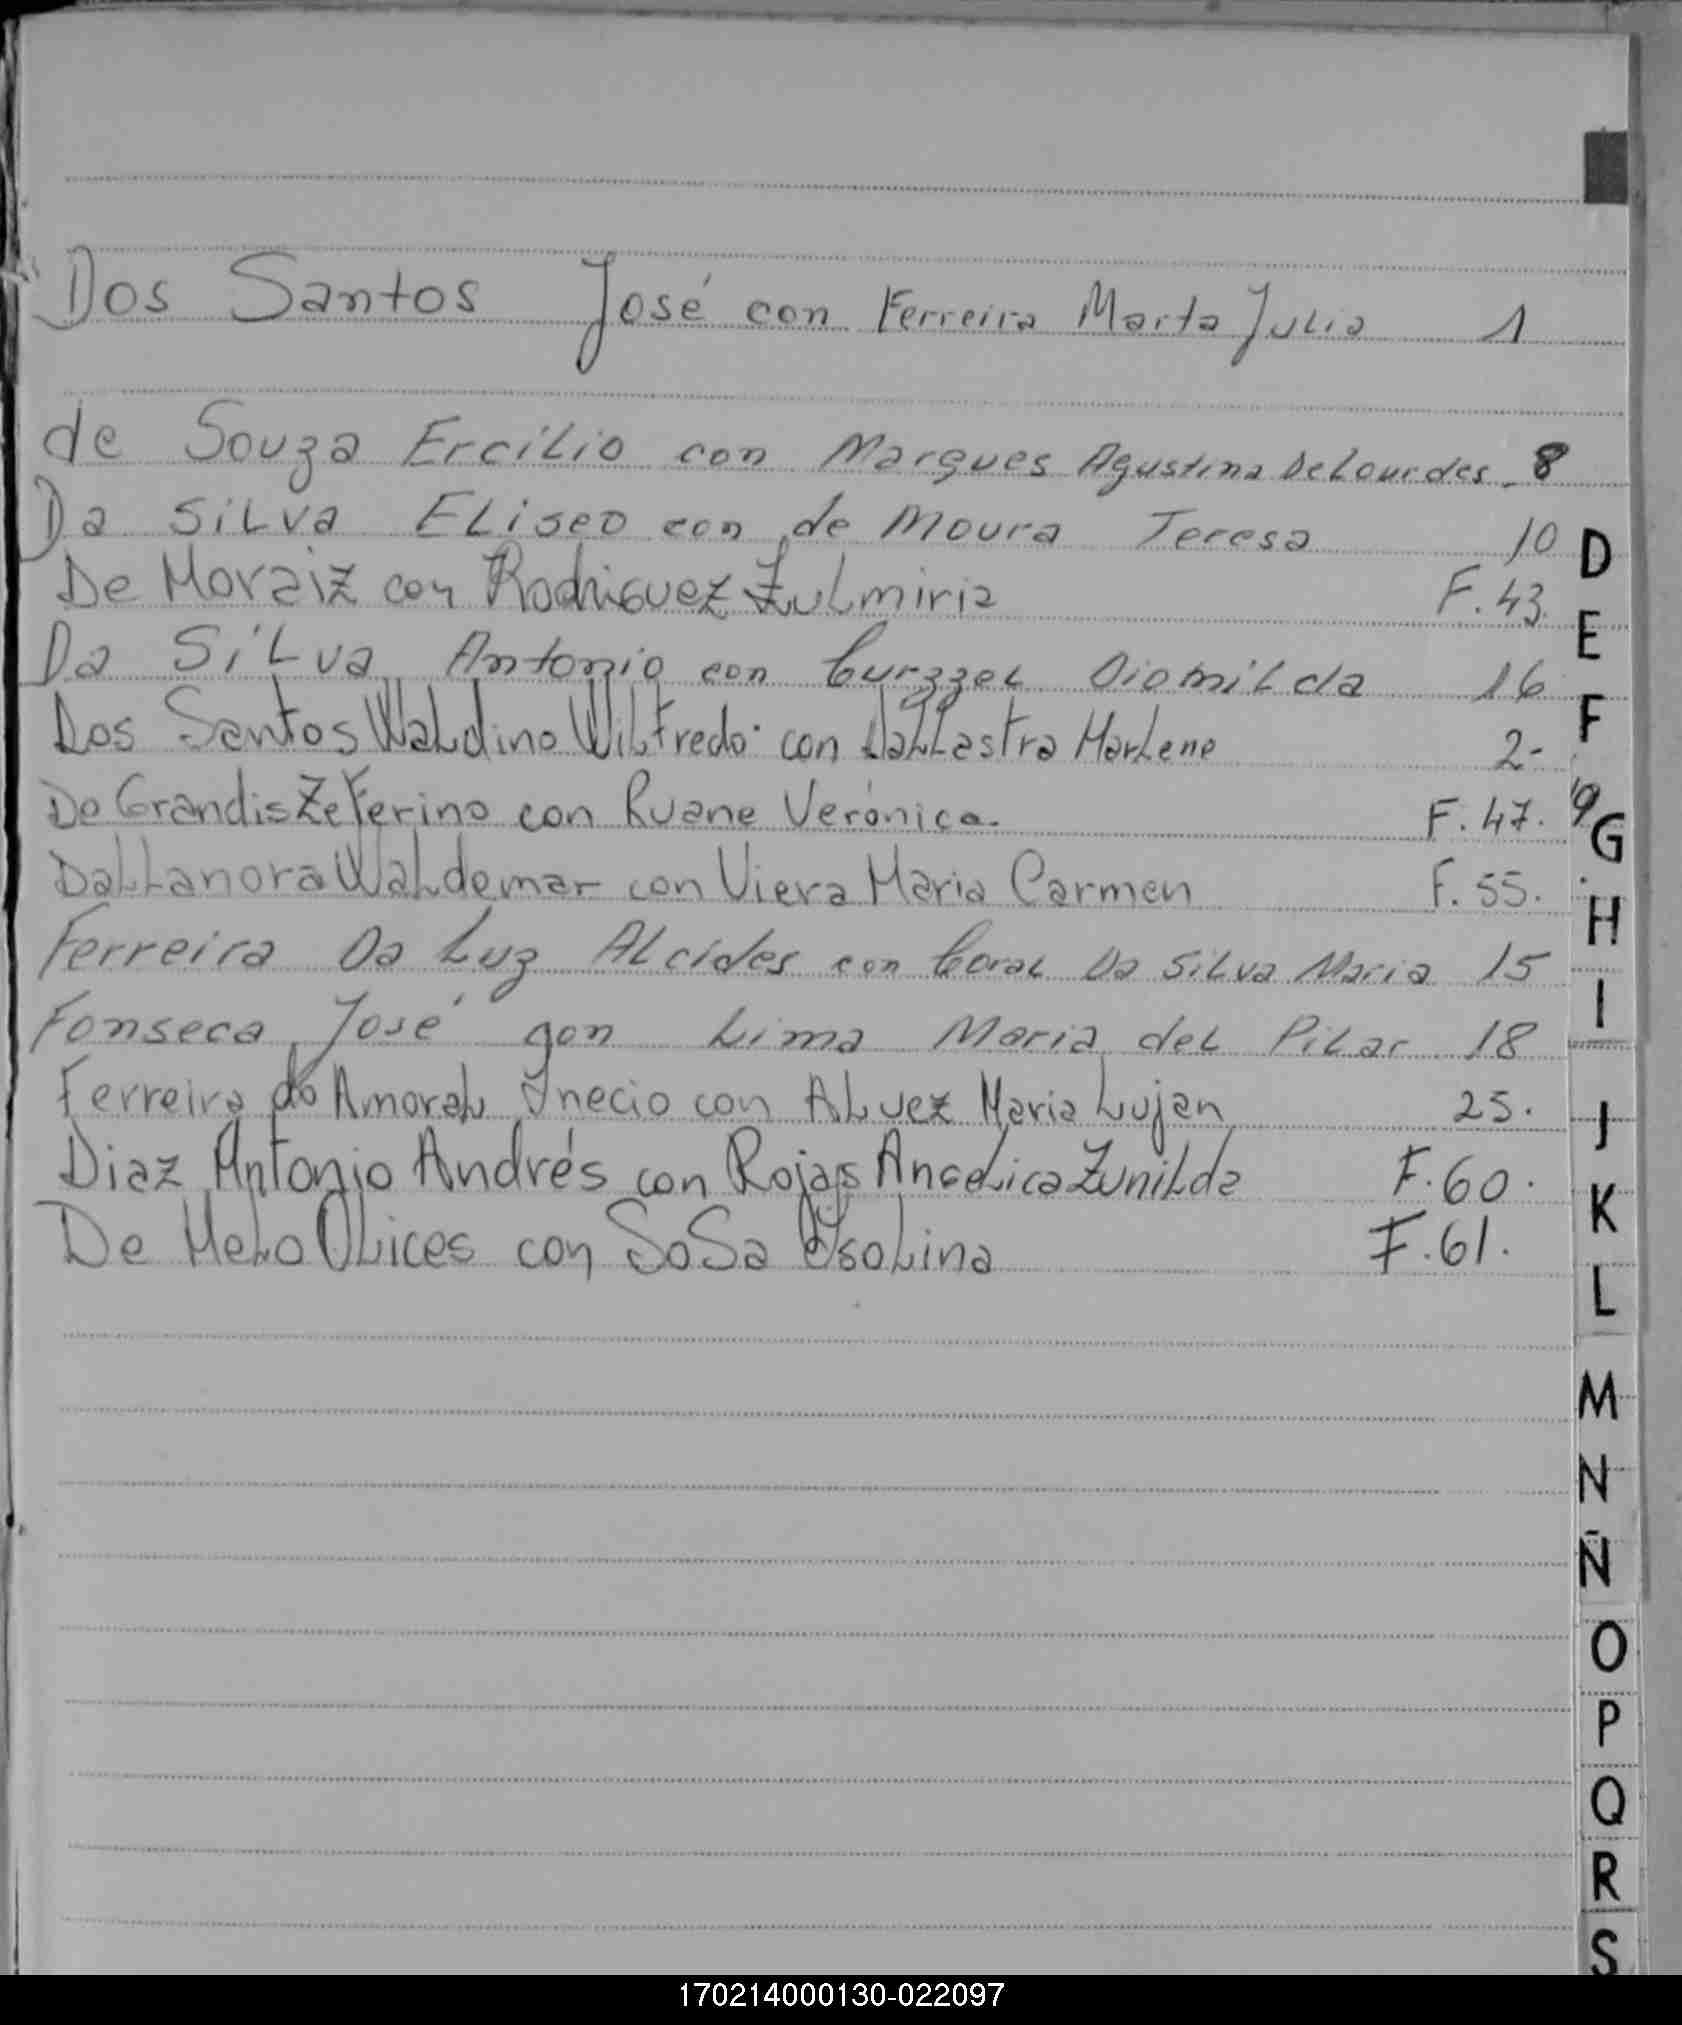 Dos Santos José con Ferreira Marta Julia 1
de Souza Ercilio con Marques Agustina De Lourdes. 8
Da Silva Eliseo con de Moura Teresa 10
De Moraiz con Rodriguez Zulmiria F. 43.
Da Silva Antonio con Curzzel Diomilda 16
Dos Santos Waldino Wilfredo con Dallastra Marlene 2-
De Grandis Zeferino con Ruane Verónica. F. 47.
Dallanora Waldemar con Viera Maria Carmen F. 55.
Ferreira Da Luz Alcides con Coral Da Silva Maria 15
Fonseca José con Lima Maria del Pilar 18
Ferreira do Amoral Inecio con Alvez Maria Lujan 25.
Diaz Antonio Andrés con Rojas Angelica Zunilda F. 60.
De Melo Olices con Sosa Ysolina F. 61.
D
E
F
G
H
I
J
K
L
M
N
Ñ
O
P
Q
R
S
170214000130-022097